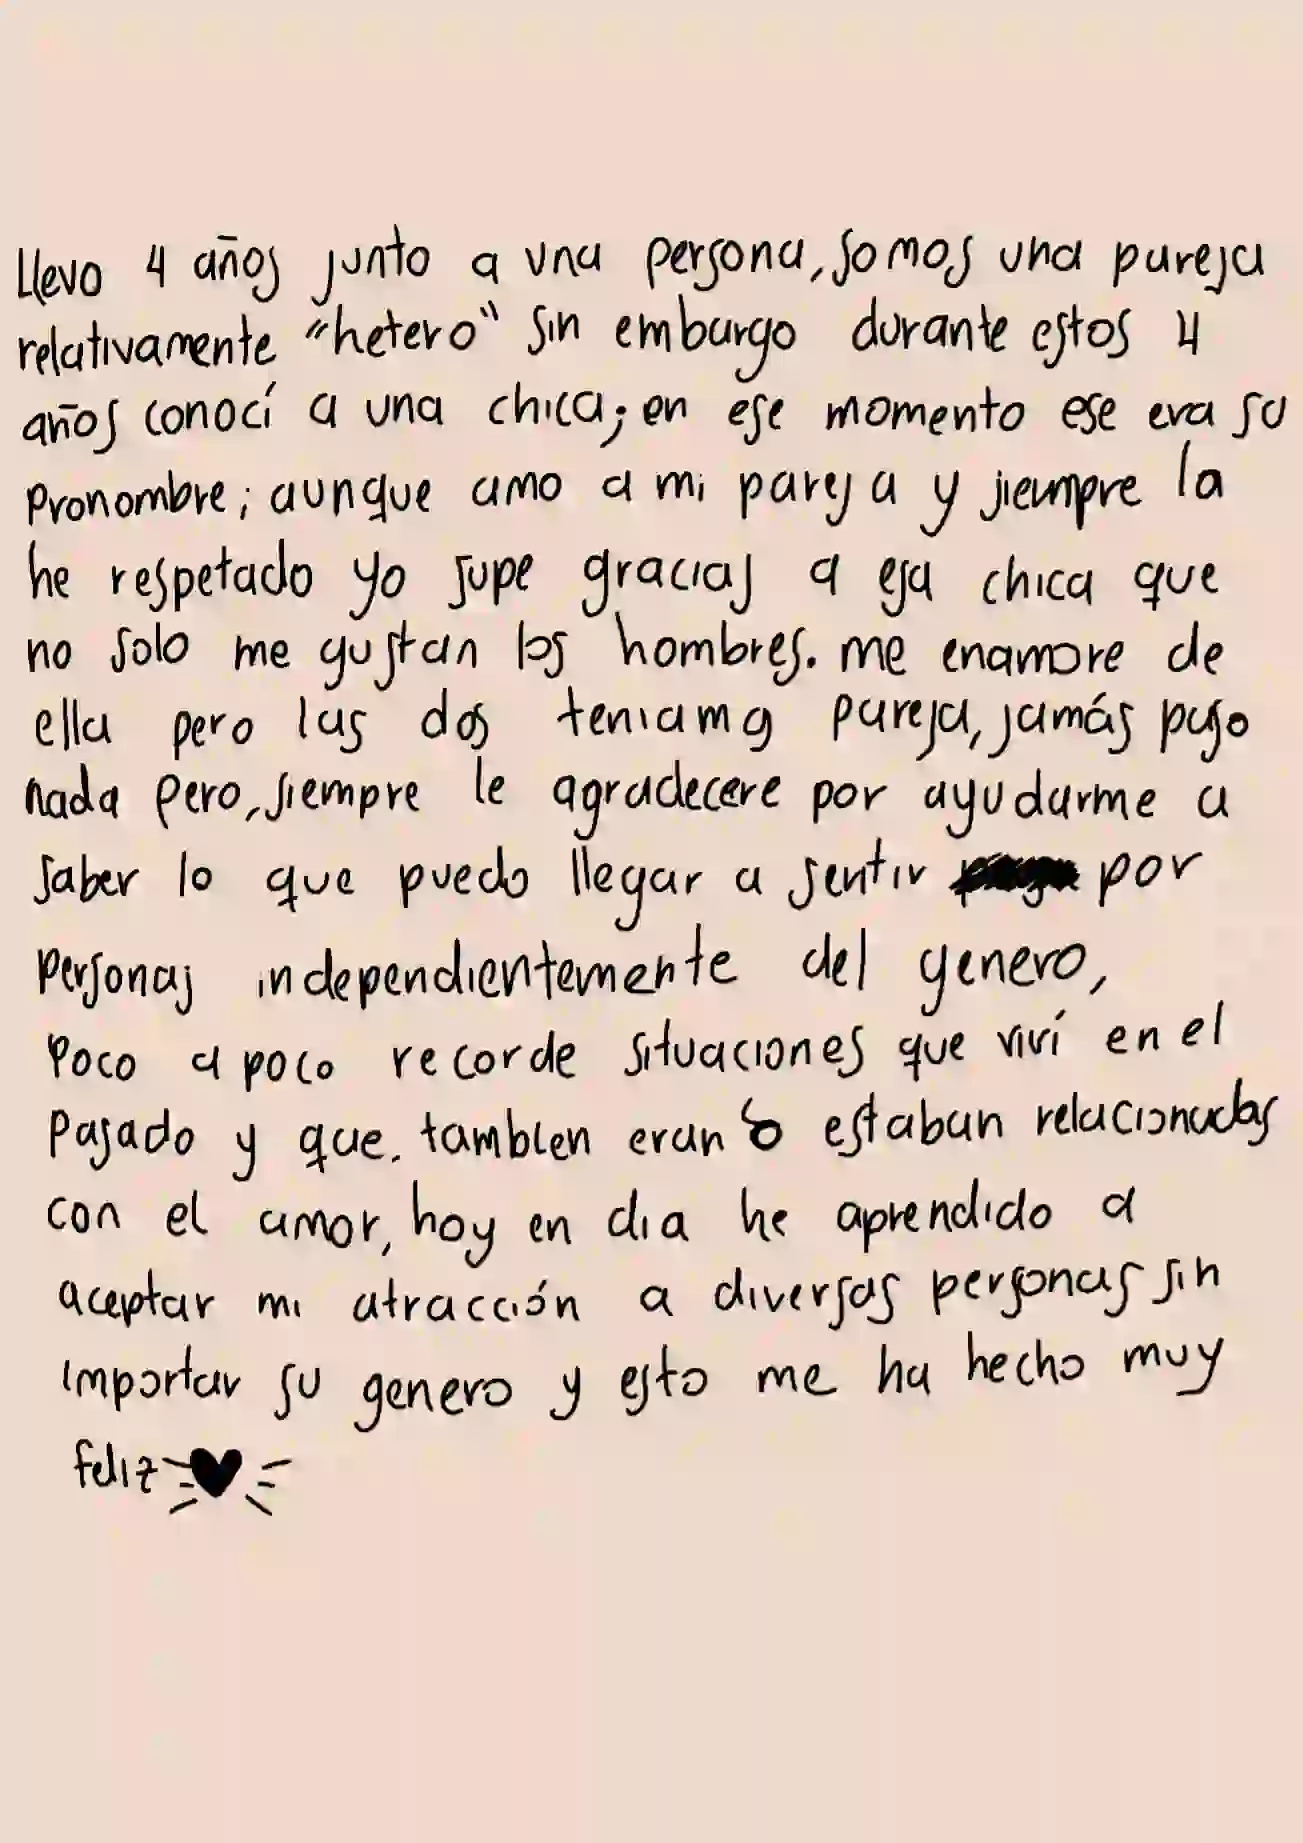 Llevo 4 años junto a una persona, somos una pareja
relativamente "hetero" sin embargo durante estos 4
años conocí a una chica; en ese momento ese era su
pronombre; aunque amo a mi pareja y siempre la
he respetado yo supe gracias a esa chica que
no solo me gustan los hombres. me enamore de
ella pero las dos teniamos pareja, jamás paso
nada pero, siempre le agradecere por ayudarme a
saber lo que puedo llegar a sentir por
personas independientemente del genero,
Poco a poco recorde situaciones que viví en el
pasado y que. tambien eran o estaban relacionadas
con el amor, hoy en dia he aprendido a
aceptar mi atracción a diversas personas sin
importar su genero y esto me ha hecho muy
feliz